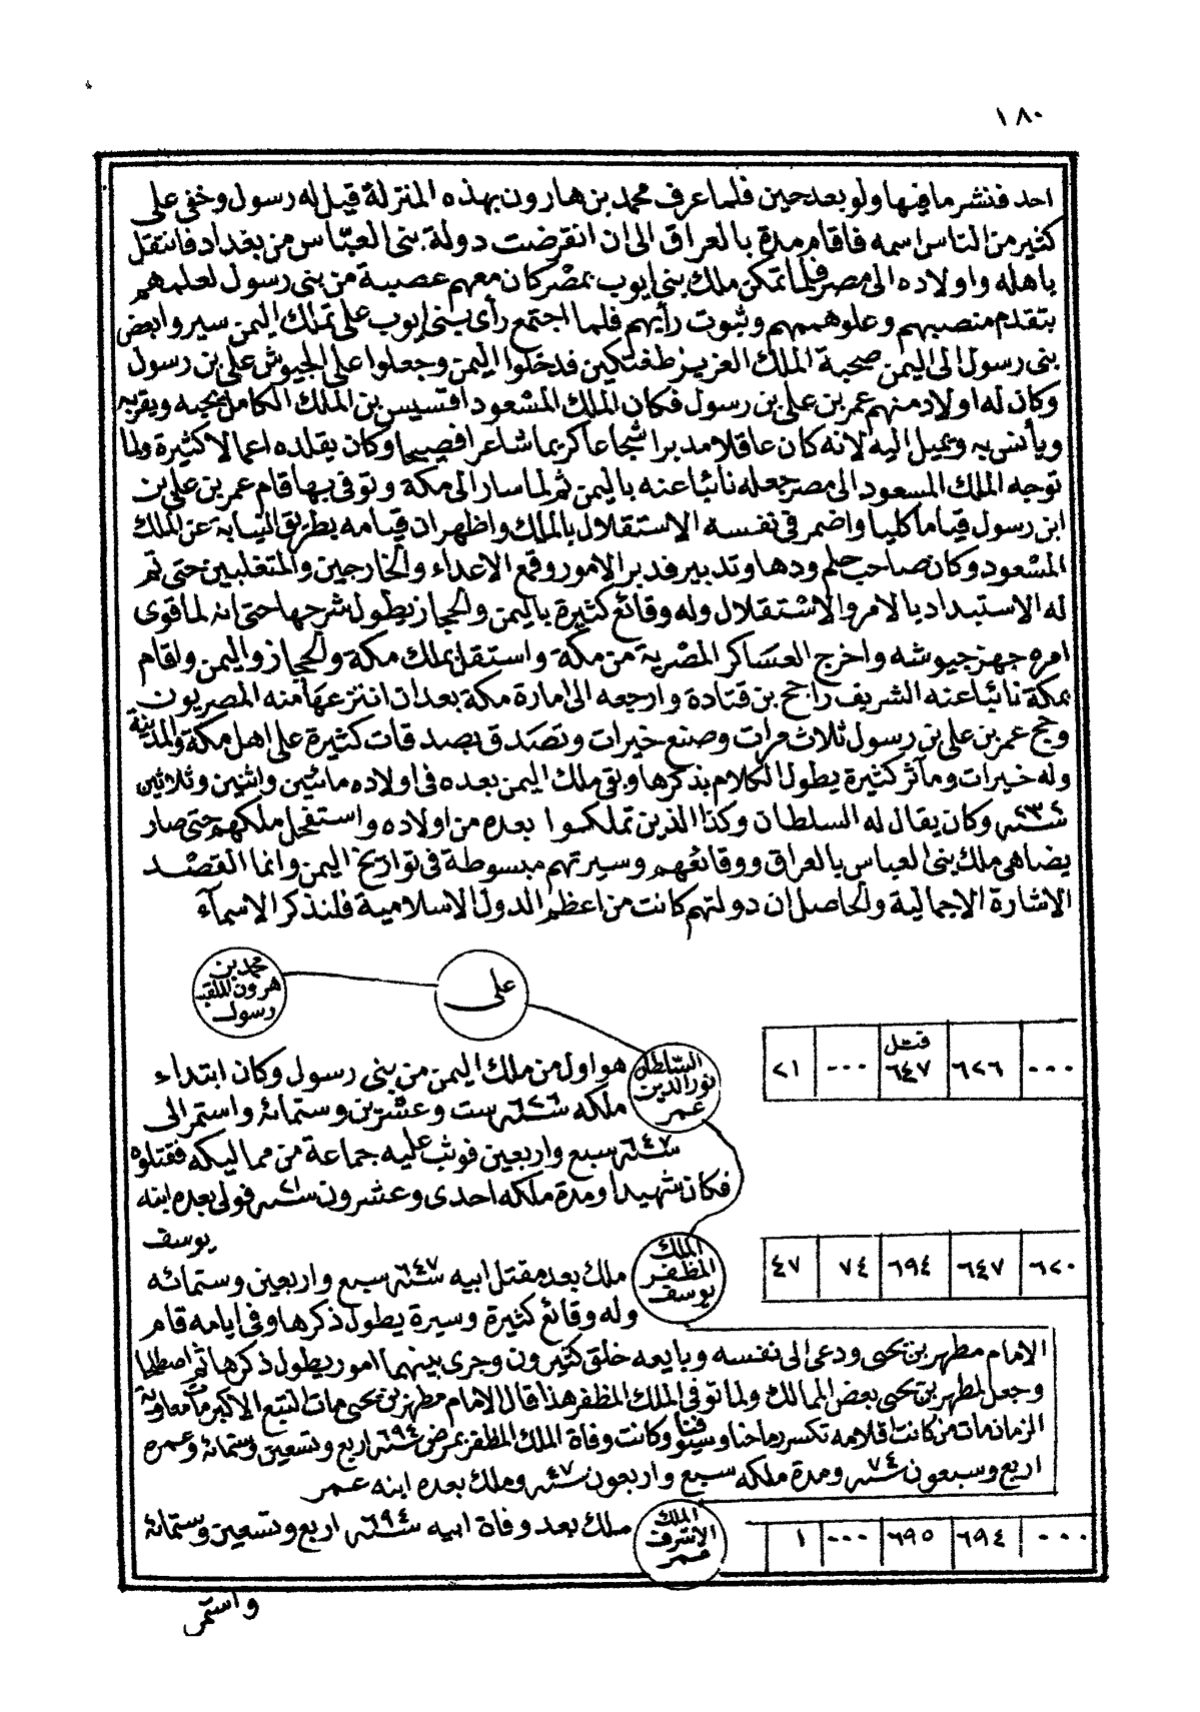 ١٨٠
احد فنشر ما فيها ولو بعد حين فلما عرف محمد بن هارون بهذه المنزلة قيل له رسول وخفي على
كثير من الناس اسمه فاقام مدة بالعراق الى ان انقرضت دولة بنى العباس من بغداد فانتقل
باهله واولاده الى مصر فلما تمكن ملك بني ايوب بمصر كان معهم عصبة من بنى رسول لعلمهم
بتقدم منصبهم وعلو هممهم وثبوت رأيهم فلما اجتمع رأى بنى ايوب على تملك اليمن سيروا بعض
بنى رسول الى اليمن صحبة الملك العزيز طغتكين فدخلوا اليمن وجعلوا على الجيوش على بن رسول
وكان له اولاد منهم عمر بن على بن رسول فكان الملك المسعود اقسيس بن الملك الكامل يحبه ويقربه
ويأنس به ويميل اليه لانه كان عاقلا مدبرا شجاعا كريما شاعرا فصيحا وكان يقلده اعمالا كثيرة ولما
توجه الملك المسعود الى مصر جعله نائبا عنه باليمن ثم لما سار الى مكة وتوفى بها قام عمر بن على بن
ابن رسول قياما كليا واضمر فى نفسه الاستقلال بالملك واظهر ان قيامه بطريق النيابة عن الملك
المسعود وكان صاحب حلم ودها وتدبير فدبر الامور وقمع الاعداء والخارجين والمتغلبين حتى تم
له الاستبداد بالامر والاستقلال وله وقائع كثيرة باليمن والحجاز يطول شرحها حتى انه لما قوى
امره جهز جيوشه واخرج العساكر المصرية من مكة واستقل بملك مكة والحجاز واليمن واقام
بمكة نائبا عنه الشريف راجح بن قتادة وارجعه الى امارة مكة بعد ان انتزعها منه المصريون
وحج عمر بن على بن رسول ثلاث مرات وصنع خيرات وتصدق بصدقات كثيرة على اهل مكة والمدينة
وله خيرات ومآثر كثيرة يطول الكلام بذكرها وبقى ملك اليمن بعده فى اولاده مائتين واثنين وثلاثين
سنة ٢٣٢ وكان يقال له السلطان وكذا الذين تملكوا بعده من اولاده واستفحل ملكهم حتى صار
يضاهى ملك بنى العباس بالعراق ووقائعهم وسيرتهم مبسوطة فى تواريخ اليمن وانما القصد
الاشارة الاجمالية والحاصل ان دولتهم كانت من اعظم الدول الاسلامية فلنذكر الاسمآء
محمد بن
هرون الملقب
رسول
على
٠٠٠ ٦٢٦ قتل ٦٤٧ ٠٠٠ ٢١
السلطان
نور الدين
عمر
هو اول من ملك اليمن من بنى رسول وكان ابتداء
ملكه سنة ٦٢٦ ست وعشرين وستمائة واستمر الى
سنة ٦٤٧ سبع واربعين فوثب عليه جماعة من مماليكه فقتلوه
فكان شهيدا ومدة ملكه احدى وعشرون سنة ٢١ فولى بعده ابنه
يوسف
٦٢٠ ٦٤٧ ٦٩٤ ٧٤ ٤٧
الملك
المظفر
يوسف
ملك بعد مقتل ابيه سنة ٦٤٧ سبع واربعين وستمائه
وله وقائع كثيرة وسيرة يطول ذكرها وفى ايامه قام
الامام مطهر بن يحيى ودعى الى نفسه وبايعه خلق كثيرون وجرى بينهما امور يطول ذكرها ثم اصطلحا
وجعل لمطهر بن يحيى بعض الممالك ولما توفى الملك المظفر هذا قال الامام مطهر بن يحيى مات التبع الاكبر مات معاوية
الزمان مات من كانت اقلامه تكسر رماحنا وسيوفنا وكانت وفاة الملك المظفر بمرض سنة ٦٩٤ اربع وتسعين وستمائة وعمره
اربع وسبعون سنة ٧٤ ومدة ملكه سبع واربعون سنة ٤٧ وملك بعده ابنه عمر
٠٠٠ ٦٩٤ ٦٩٥ ٠٠٠ ١
الملك
الاشرف
عمر
ملك بعد وفاة ابيه سنة ٦٩٤ اربع وتسعين وستمائة
واستمر